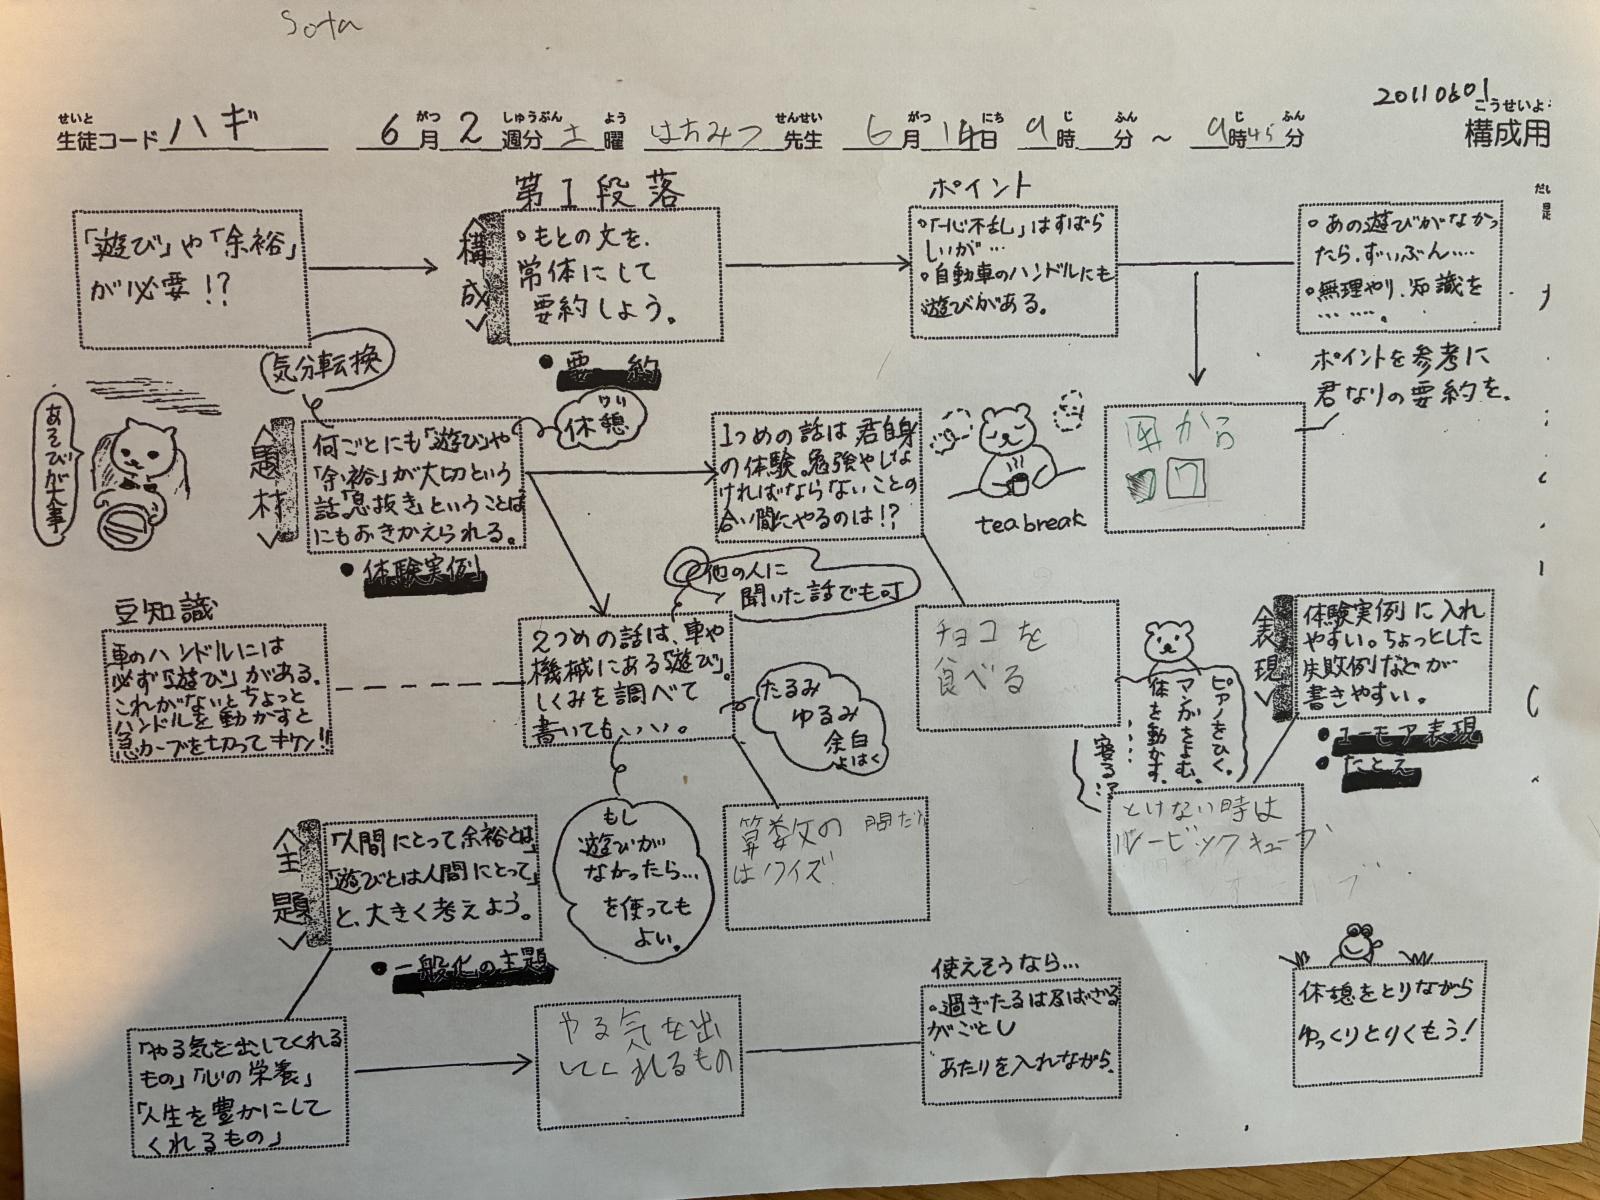 Sota
20110601
せいと がつ しゅうぶん よう せんせい がつ にち じ ふん じ ふん こうせいよ
生徒コード ハギ 6月2週分 土曜 はちみつ先生 6月14日 9時 分 ~ 9時45分 構成用
「遊び」や「余裕」
が必要!?
第1段落
<構成>
・もとの文を、
常体にして
要約しよう。
●要約
ポイント
・「一心不乱」はすばら
しいが…
・自動車のハンドルにも
遊びがある。
・あの遊びがなかっ
たら、ずいぶん……
・無理やり、知識を
………。
ポイントを参考に
君なりの要約を。
から
ワ
気分転換
休憩
あそびが大事
<題材>
何ごとにも「遊び」や
「余裕」が大切という
話「息抜き」ということば
にもおきかえられる。
●体験実例
1つめの話は君自身
の体験。勉強やしな
ければならないことの
合い間にやるのは!?
tea break
他の人に
聞いた話でも可
豆知識
車のハンドルには
必ず「遊び」がある。
これがないとちょっと
ハンドルを動かすと
急カーブを切ってキケン!!
2つめの話は、車や
機械にある「遊び」。
しくみを調べて
書いてもいい。
たるみ
ゆるみ
余白
よはく
チョコを
食べる
ピアノをひく。
マンガをよむ。
体を動かす。
……
寝る!?
<表現>
体験実例に入れ
やすい。ちょっとした
失敗例などが
書きやすい。
●ユーモア表現
●たとえ
もし
遊びが
なかったら…
を使っても
よい。
算数の 問だい
はクイズ
とけない時は
ルービックキューブ
<主題>
「人間にとって余裕とは」
「遊びとは人間にとって」
と、大きく考えよう。
●一般化の主題
「やる気を出してくれる
もの」「心の栄養」
「人生を豊かにして
くれるもの」
やる気を出
してくれるもの
使えそうなら…
・過ぎたるは及ばざる
がごとし
あたりを入れながら。
休憩をとりながら
ゆっくりとりくもう!